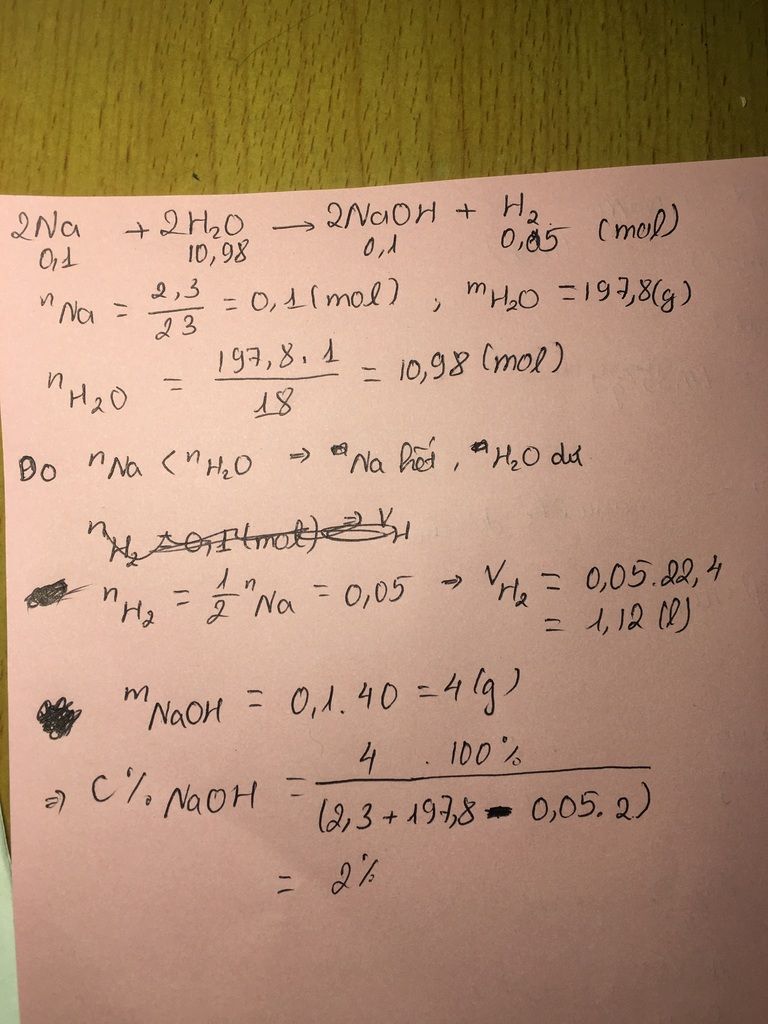 2Na + 2H₂O → 2NaOH + H₂
0,1 10,98 0,1 0,05 (mol)
nNa = 2,3/23 = 0,1 (mol) , mH₂O = 197,8(g)
nH₂O = 197,8 . 1/18 = 10,98 (mol)
Do nNa < nH₂O ⇒ Na hết, H₂O dư
nH₂ = 0,1 (mol) ⇒ VH
nH₂ = 1/2 nNa = 0,05 → VH₂ = 0,05.22,4
= 1,12 (l)
mNaOH = 0,1.40 = 4(g)
⇒ C% NaOH = 4 . 100%/(2,3 + 197,8 - 0,05.2)
= 2%